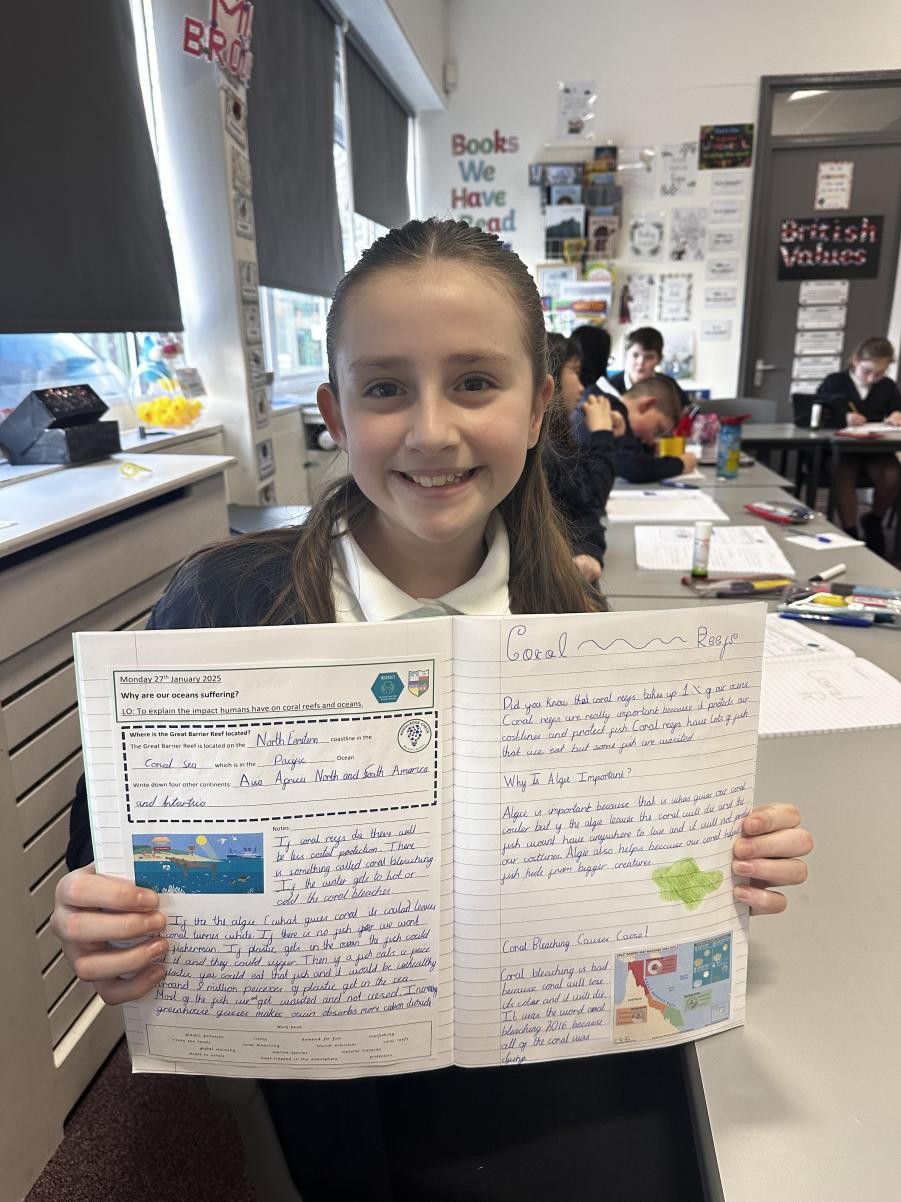 MI
BRO
Books
We
Have
Read
British
Values
Monday 27th January 2025
Why are our oceans suffering?
LO: To explain the impact humans have on coral reefs and oceans.
RESPECT
Where is the Great Barrier Reef located?
The Great Barrier Reef is located on the North Eastern coastline in the
Coral sea which is in the Pacific Ocean.
Write down four other continents: Aus Africa North and South America
and Antartica
Notes:
If coral reefs die there will
be less costal protection. There
is something called coral bleaching
If the water gets to hot or
cold the coral bleaches.
If the the algie (what gives coral its coulad leaves
coral turnes white. If there is no fish we wont
fisherman. If plastic gets in the ocean the fish could
eat it and they could suffer. Then if a fish eats a peice
plastic you could eat that fish and it would be unhealthy
around 8 million peieces of plastic get in the sea.
Most of the fish we get waisted and not uesed. Increasing
greenhouse gasses makes ocean absorbs more cabon dioxide
Word bank
plastic pollution fishing demand for fish overfishing
rising sea levels coral bleaching tourist activities coral reefs
global warming marine species natural hazards
areas to corals heat trapped in the atmosphere protection
Coral Reefs
Did you know that coral reefs takes up 1% of our ocens
Coral reefs are really important because it protects our
costlines and protect fish. Coral reefs have lots of fish
that we eat but some fish are waisted.
Why Is Algie Important?
Algie is important because that is what gives our coral
couler but if the algie leaves the coral will die and the
fish wount have anywhere to live and it will not protect
our costlines. Algie also helps because our coral helps
fish hide from bigger creatures.
Coral Bleaching Causes Cause!
Coral bleaching is bad
because coral will lose
its color and it will die.
It was the worst coral
bleaching 2016 because
all of the coral was
dieing